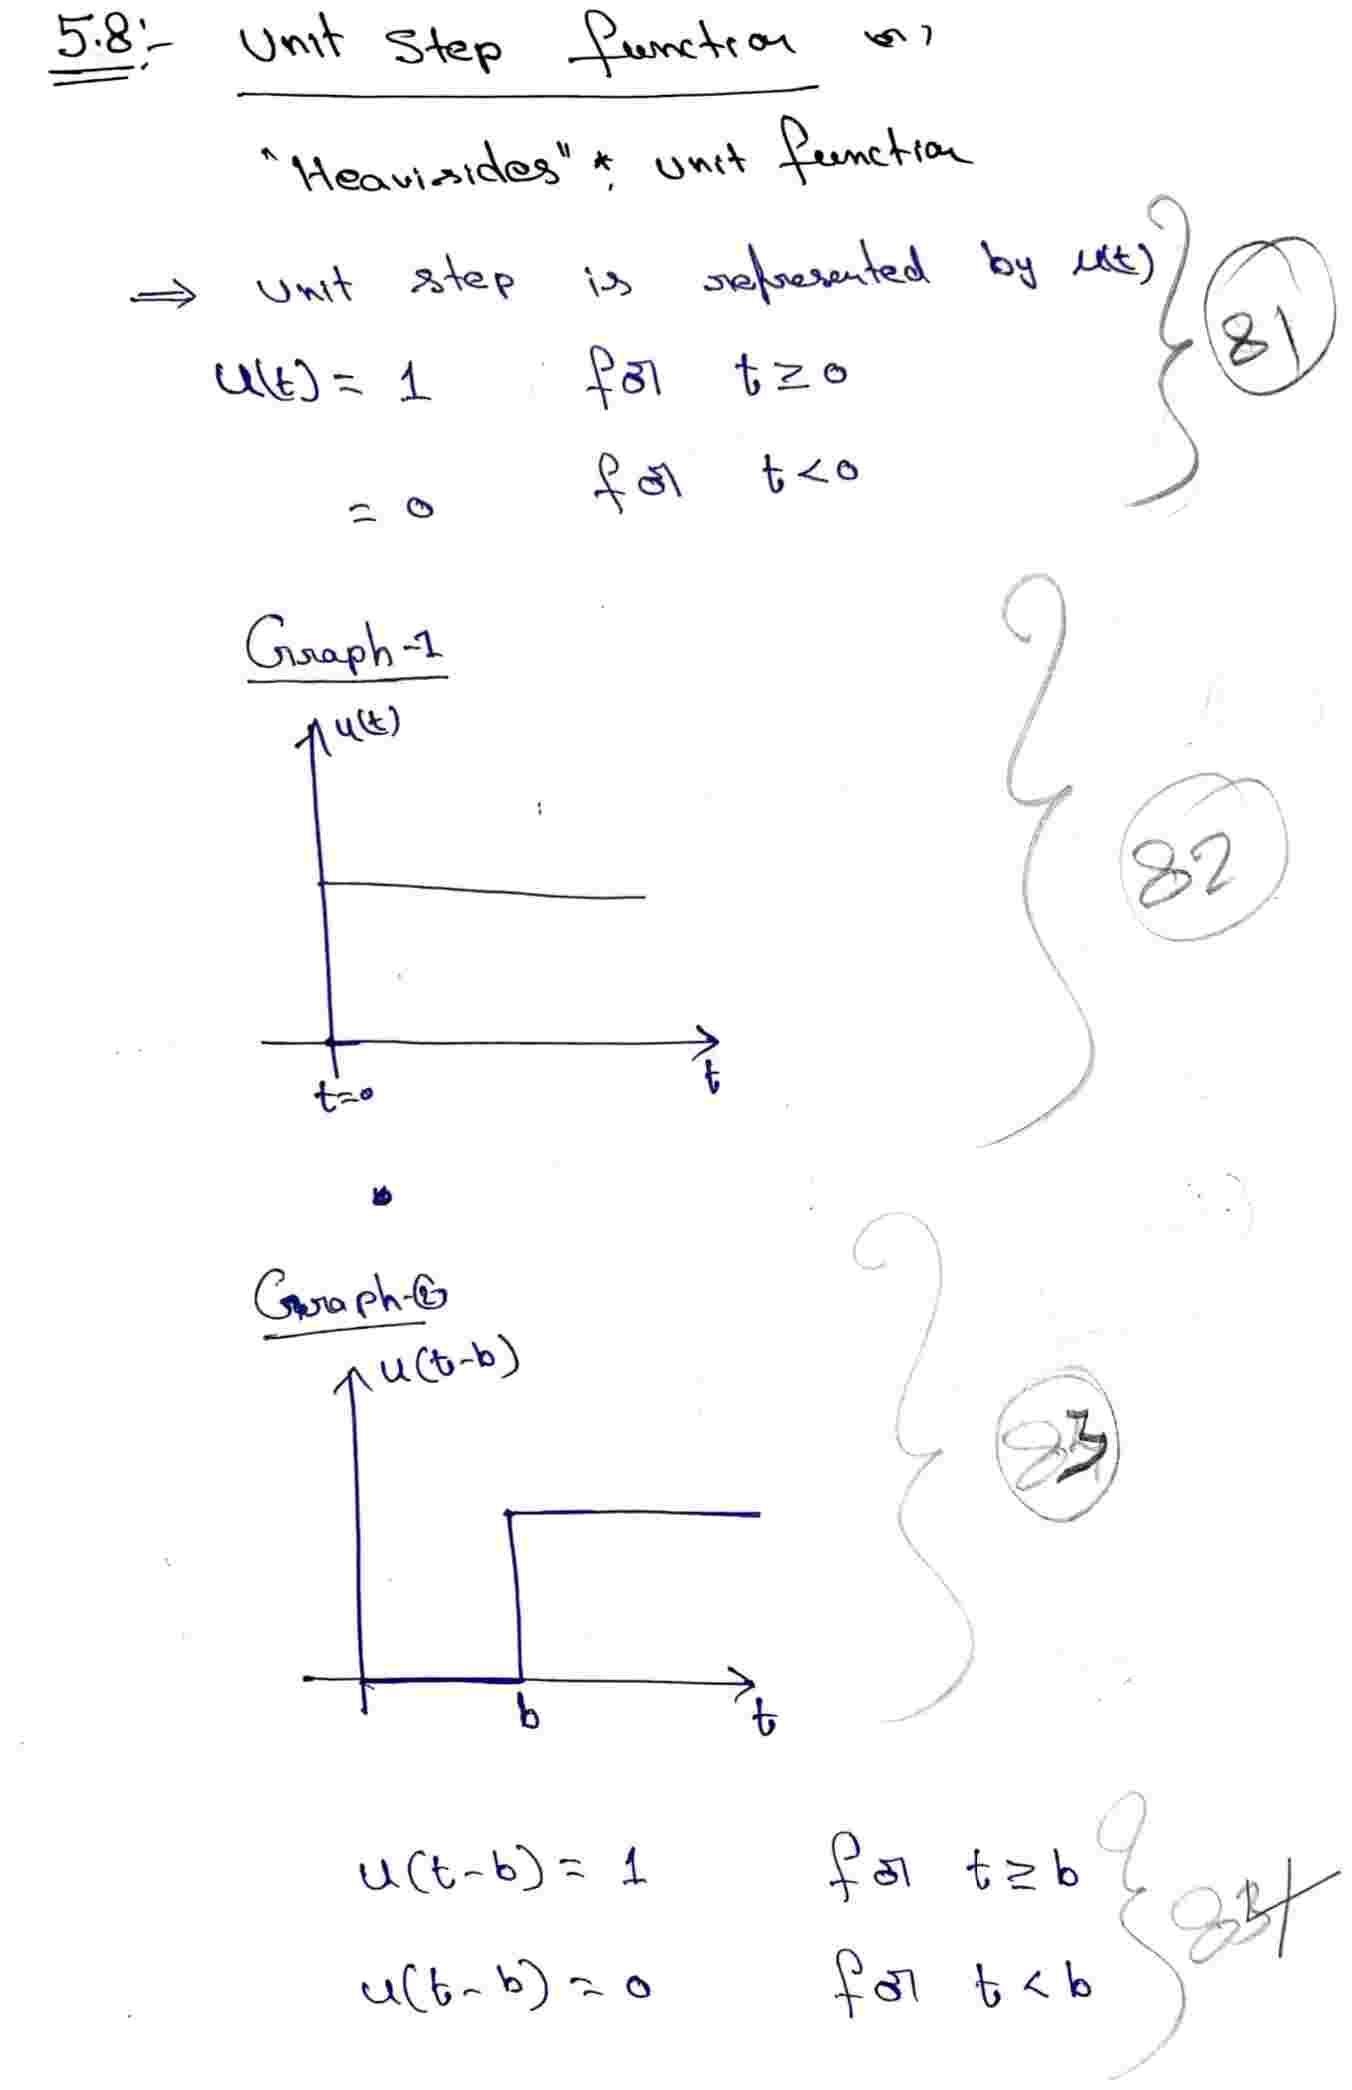 5.8:- Unit Step function or,
"Heavisides" * unit function
⇒ Unit step is represented by u(t)
81
u(t) = 1 for t ≥ 0
= 0 for t < 0
Graph-1
u(t)
82
t=0
t
Graph-②
u(t-b)
83
b
t
u(t-b) = 1 for t ≥ b
u(t-b) = 0 for t < b